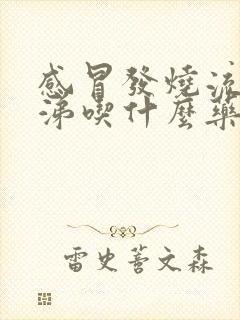 感冒發燒流
涕喫什麼藥
雷史善文森